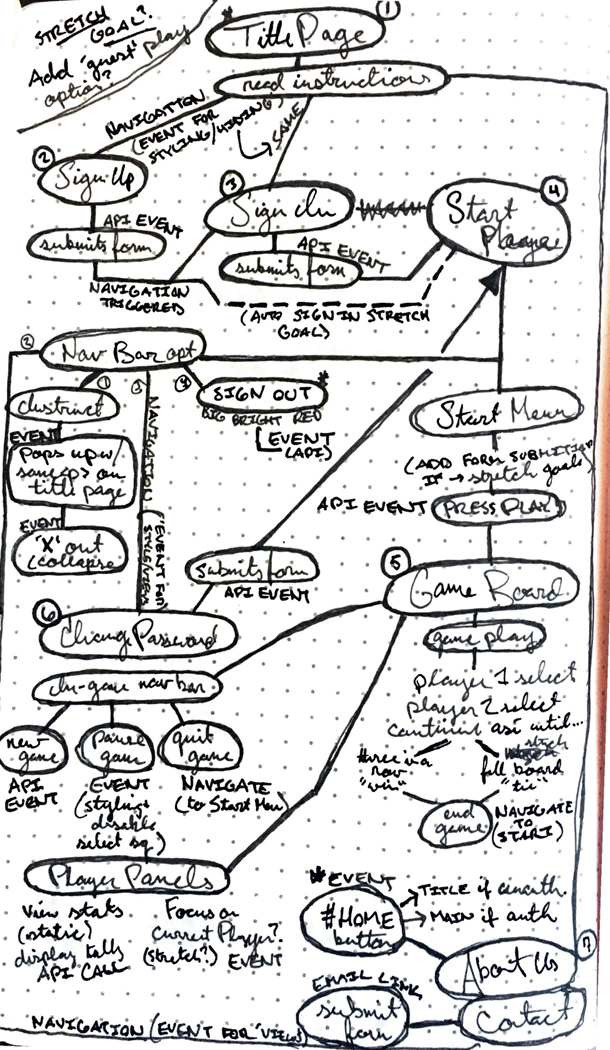 STRETCH
GOAL?
Add "guest" play
option?
①
* Title Page
read instructions
NAVIGATION
(EVENT FOR
STYLING/HIDING)
SAME
②
Sign Up
API EVENT
submits form
③
Sign In
API EVENT
submits form
④
Start
Player
NAVIGATION
TRIGGERED
(AUTO SIGN IN STRETCH
GOAL)
②
Nav Bar opt
①
③
④
instruct
EVENT
POPS UP w/
same <p> on
title page
EVENT
'X' out
(collapse
NAVIGATION (EVENT FOR
STYLE/VIEWS)
SIGN OUT *
BIG BRIGHT RED
EVENT
(API)
Start Menu
(ADD FORM SUBMITION
IF → stretch goals)
API EVENT
PRESS PLAY
submits form
API EVENT
⑤
Game Board
game play
player 1 select
player 2 select
continues asi until...
three in a
row
"win"
full board
"tie"
end
game
(NAVIGATE
TO
START)
⑥
Change Password
In-game nav bar
new
game
API
EVENT
pause
game
EVENT
(styling &
disable
select sq.)
quit
game
NAVIGATE
(to Start Men)
Player Panels
View stats
(static)
display tally
API CALL
Focus on
current Player?
(stretch?) EVENT
* EVENT
#HOME
button
→ TITLE if unauth.
→ MAIN if auth
⑦
About Us
EMAIL LINK
submit
form
Contact
NAVIGATION (EVENT FOR 'VIEWS')